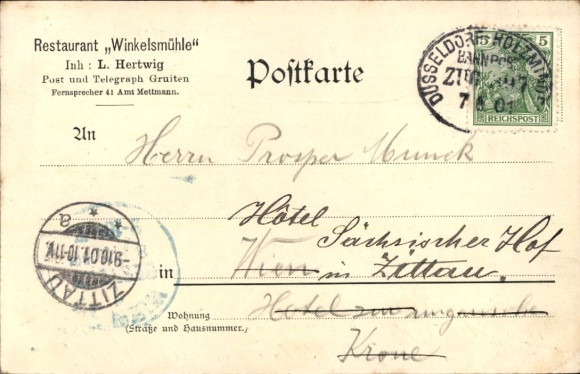 Restaurant „Winkelsmühle“
Inh : L. Hertwig
Post und Telegraph Gruiten
Fernsprecher 41 Amt Mettmann.
Postkarte
DÜSSELDORF-HOLZMINDEN
BAHNPOST
ZUG
7 01
5 5
REICHSPOST
An
Herrn Prosper Munck
Hôtel Sächsischer Hof
in Wien in Zittau.
Wohnung
(Straße und Hausnummer.)
Hotel zur ungarische
Krone
ZITTAU
-9.10.01.10-11V.
* a *